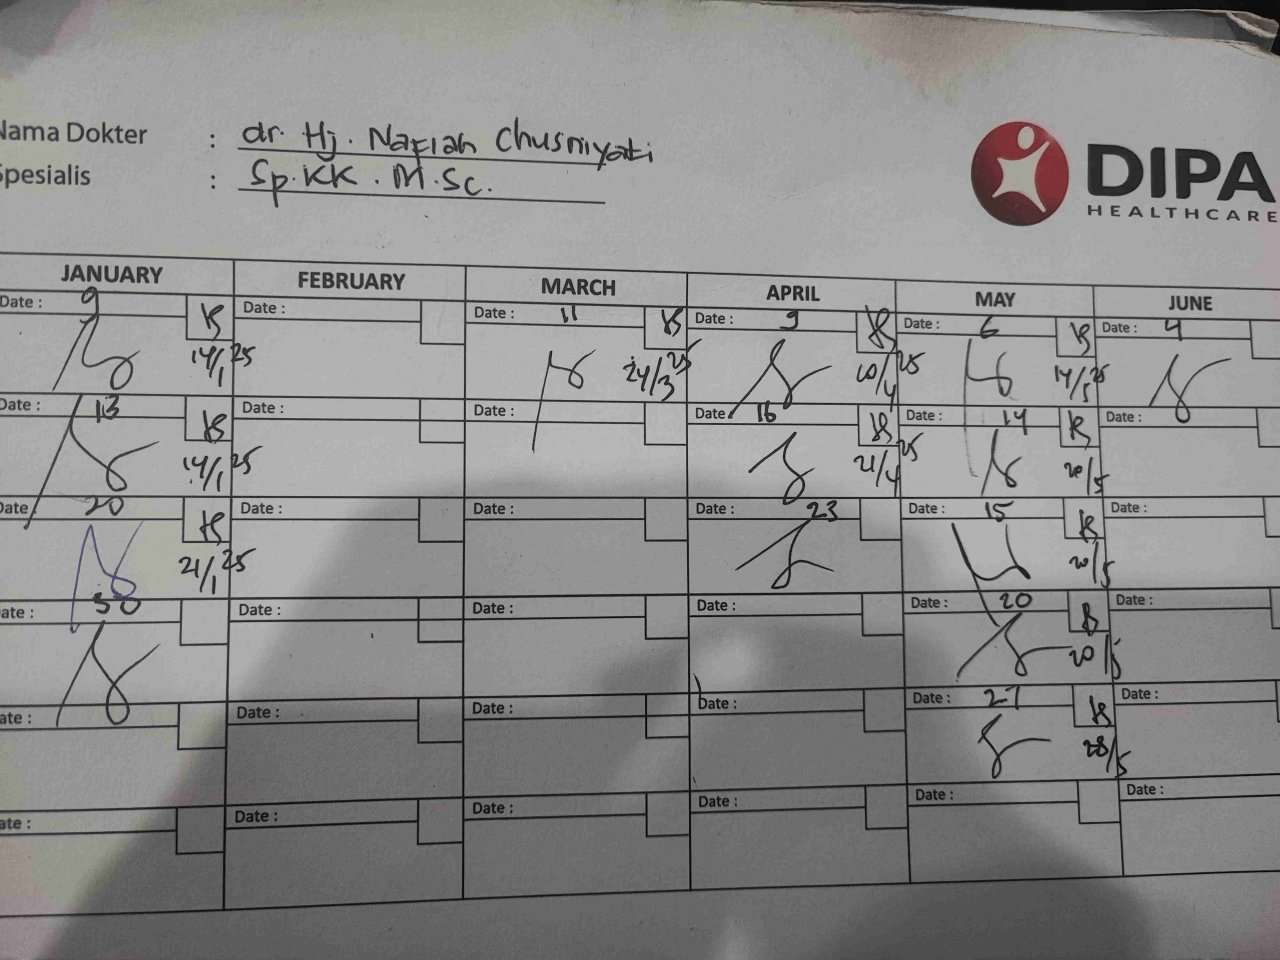 Nama Dokter : dr. Hj. Nafiah Chusniyati
Spesialis : Sp.KK. M.Sc.
DIPA
HEALTHCARE
JANUARY FEBRUARY MARCH APRIL MAY JUNE
Date : 9 Date : Date : 11 Date : 9 Date : 6 Date : 4
14/1 25 24/3 25 10/4 25 14/5 25
Date : 13 Date : Date : Date : 16 Date : 14 Date :
14/1 25 21/4 25 20/5
Date 20 Date : Date : Date : 23 Date : 15 Date :
21/1 25 20/5
Date : 30 Date : Date : Date : Date : 20 Date :
20/5
Date : Date : Date : Date : Date : 27 Date :
28/5
Date : Date : Date : Date : Date : Date :